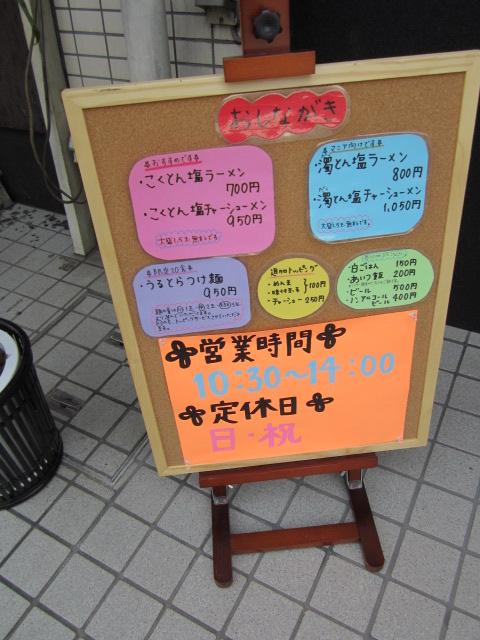 おしながき
おすすめです
・こくとん塩ラーメン
700円
・こくとん塩チャーシューメン
950円
大盛しても無料です。
マニア向けです
・濁とん塩ラーメン
800円
・濁とん塩チャーシューメン
1,050円
大盛しても無料です。
限定20食
・うるとらつけ麺
950円
追加トッピング
・めん玉
・味付玉子
}100円
・チャーシュー 250円
・白ごはん 150円
・あいつ飯 200円
・ビール 500円
・ノンアルコールビール 400円
営業時間
10:30〜14:00
定休日
日・祝